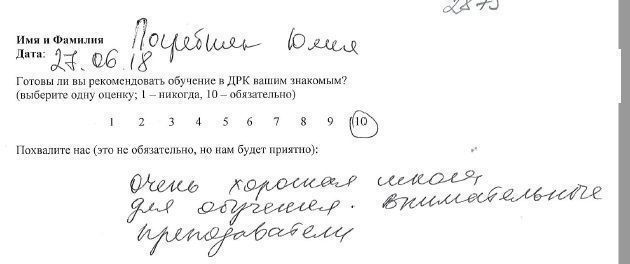 2875
Имя и Фамилия Погребняк Юлия
Дата: 27.06.18
Готовы ли вы рекомендовать обучение в ДРК вашим знакомым?
(выберите одну оценку; 1 – никогда, 10 – обязательно)
1 2 3 4 5 6 7 8 9 10
Похвалите нас (это не обязательно, но нам будет приятно):
Очень хорошая школа
для обучения. Внимательные
преподаватели